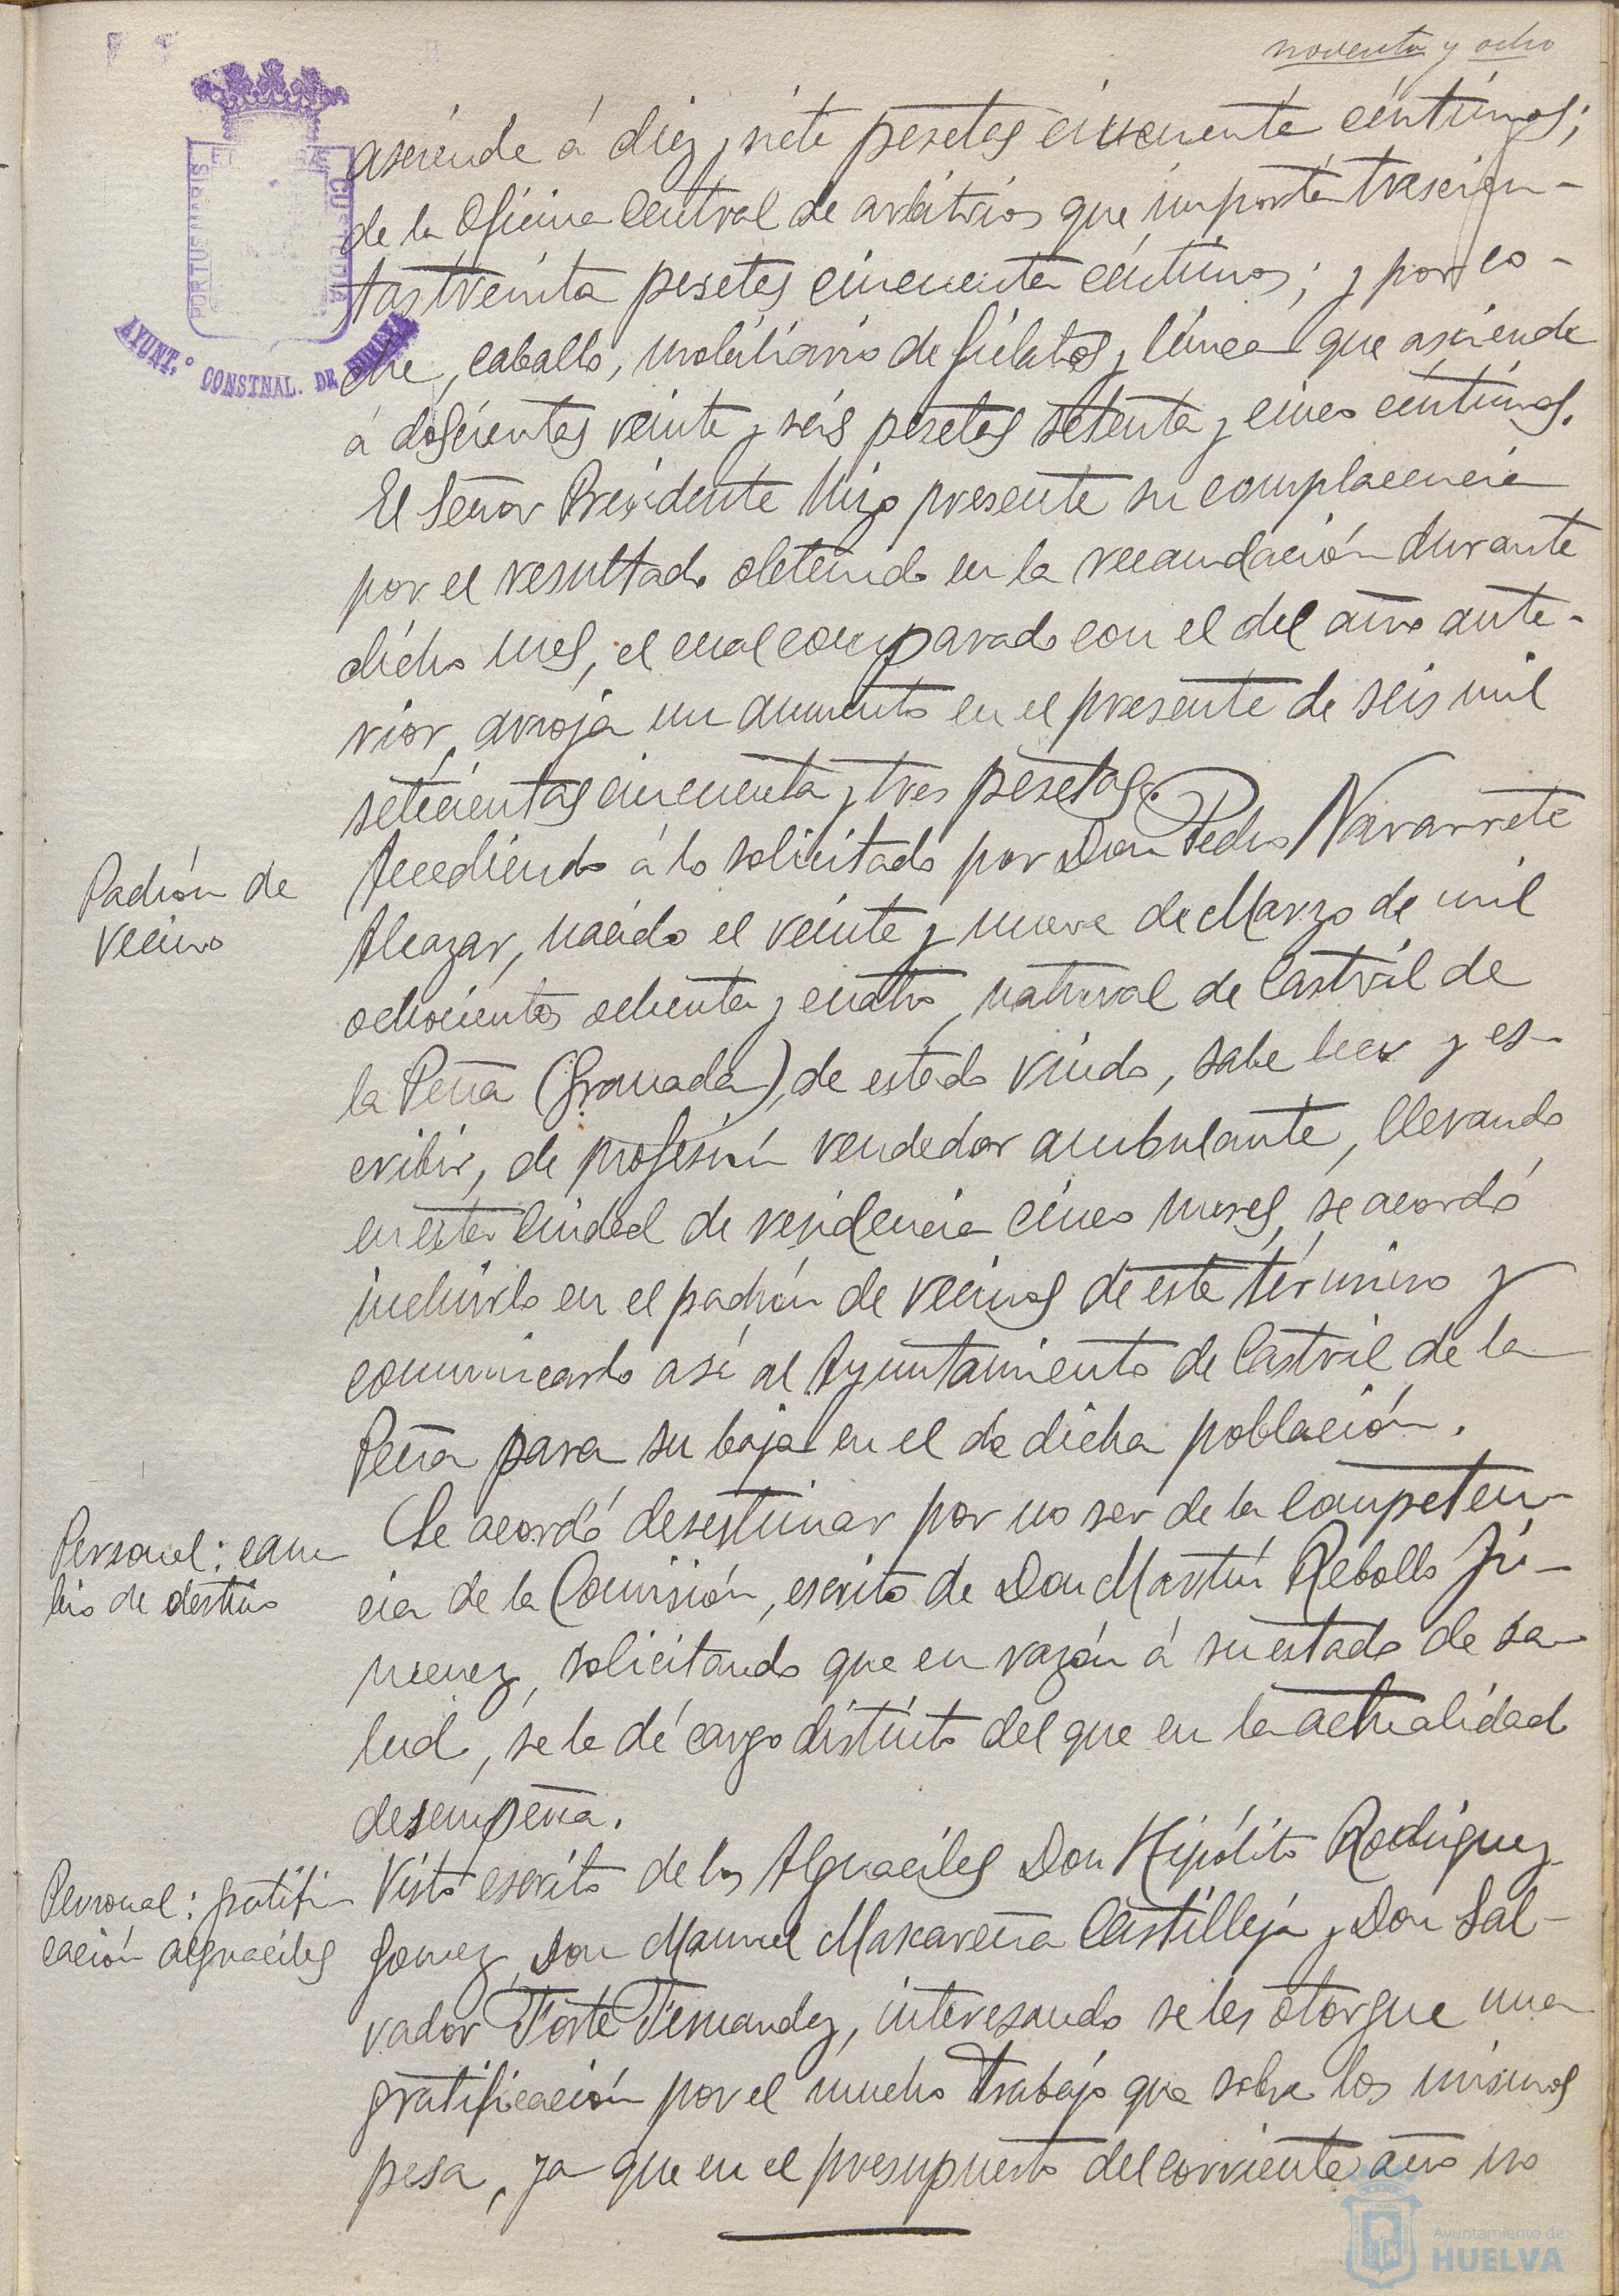 noventa y ocho
asciende á diez y siete pesetas cincuenta céntimos;
de la Oficina Central de arbitrios que importa trescien-
tas treinta pesetas cincuenta céntimos; y por co-
che, caballo, mobiliario de fielatos y línea que asciende
á doscientas veinte y seis pesetas setenta y cinco céntimos.
El Señor Presidente hizo presente su complacencia
por el resultado obtenido en la recaudación durante
dicho mes, el cual comparado con el del año ante-
rior, arroja un aumento en el presente de seis mil
setecientas cincuenta y tres pesetas.
Padrón de
vecino
Accediendo á lo solicitado por Don Pedro Navarrete
Alcazar, nacido el veinte y nueve de Marzo de mil
ochocientos ochenta y cuatro, natural de Castril de
la Peña (Granada), de estado viudo, sabe leer y es-
cribir, de profesión vendedor ambulante, llevando
en esta Ciudad de residencia cinco meses, se acordó
incluirlo en el padrón de vecinos de este término y
comunicarlo así al Ayuntamiento de Castril de la
Peña para su baja en el de dicha población.
Personal: cam
bio de destino
Se acordó desestimar por no ser de la competen-
cia de la Comisión, escrito de Don Martín Rebollo Ji-
menez, solicitando que en razón á su estado de sa-
lud, se le dé cargo distinto del que en la actualidad
desempeña.
Personal: gratifi-
cación alguaciles
Visto escrito de los Alguaciles Don Hipólito Rodriguez
Gomez, Don Manuel Mascareña Castilleja y Don Sal-
vador Forte Fernandez, interesando se les otorgue una
gratificación por el mucho trabajo que sobre los mismos
pesa, ya que en el presupuesto del corriente año no
PORTUS MARIS
CUSTODIA
AYUNT.º CONSTNAL. DE HUELVA
Ayuntamiento de
HUELVA